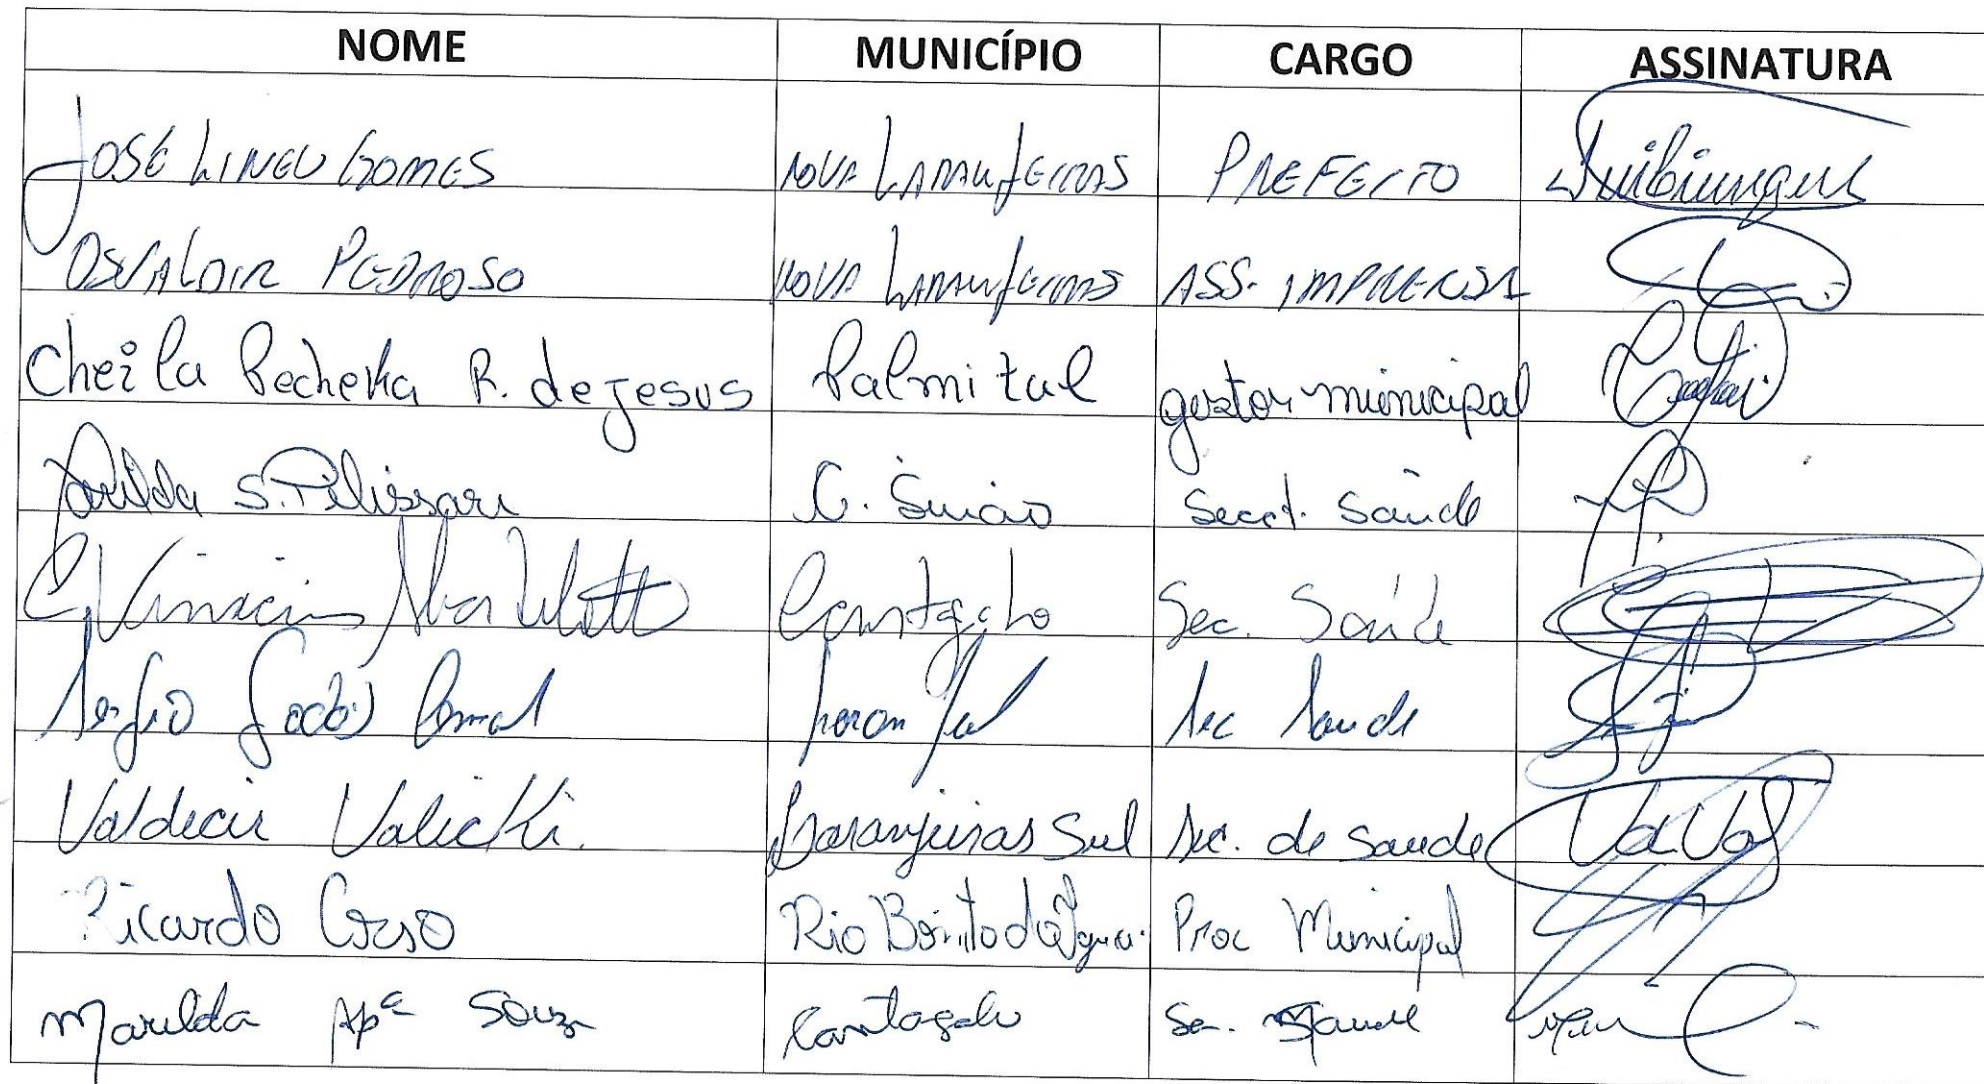 NOME MUNICÍPIO CARGO ASSINATURA
JOSÉ LINEU GOMES NOVA LARANJEIRAS PREFEITO
OSVALDIR PEDROSO NOVA LARANJEIRAS ASS. IMPRENSA
Cheila Pecheka R. de Jesus Palmital gestor municipal
S. Pelissari Secret. Saúde
Vinicius Cantagalo Sec. Saúde
Sergio Sec Saude
Valdecir Valicki Laranjeiras Sul Sec. de Saude
Ricardo Corso Rio Bonito do Iguaçu Proc Municipal
Marilda Apª Souza Cantagalo Saude